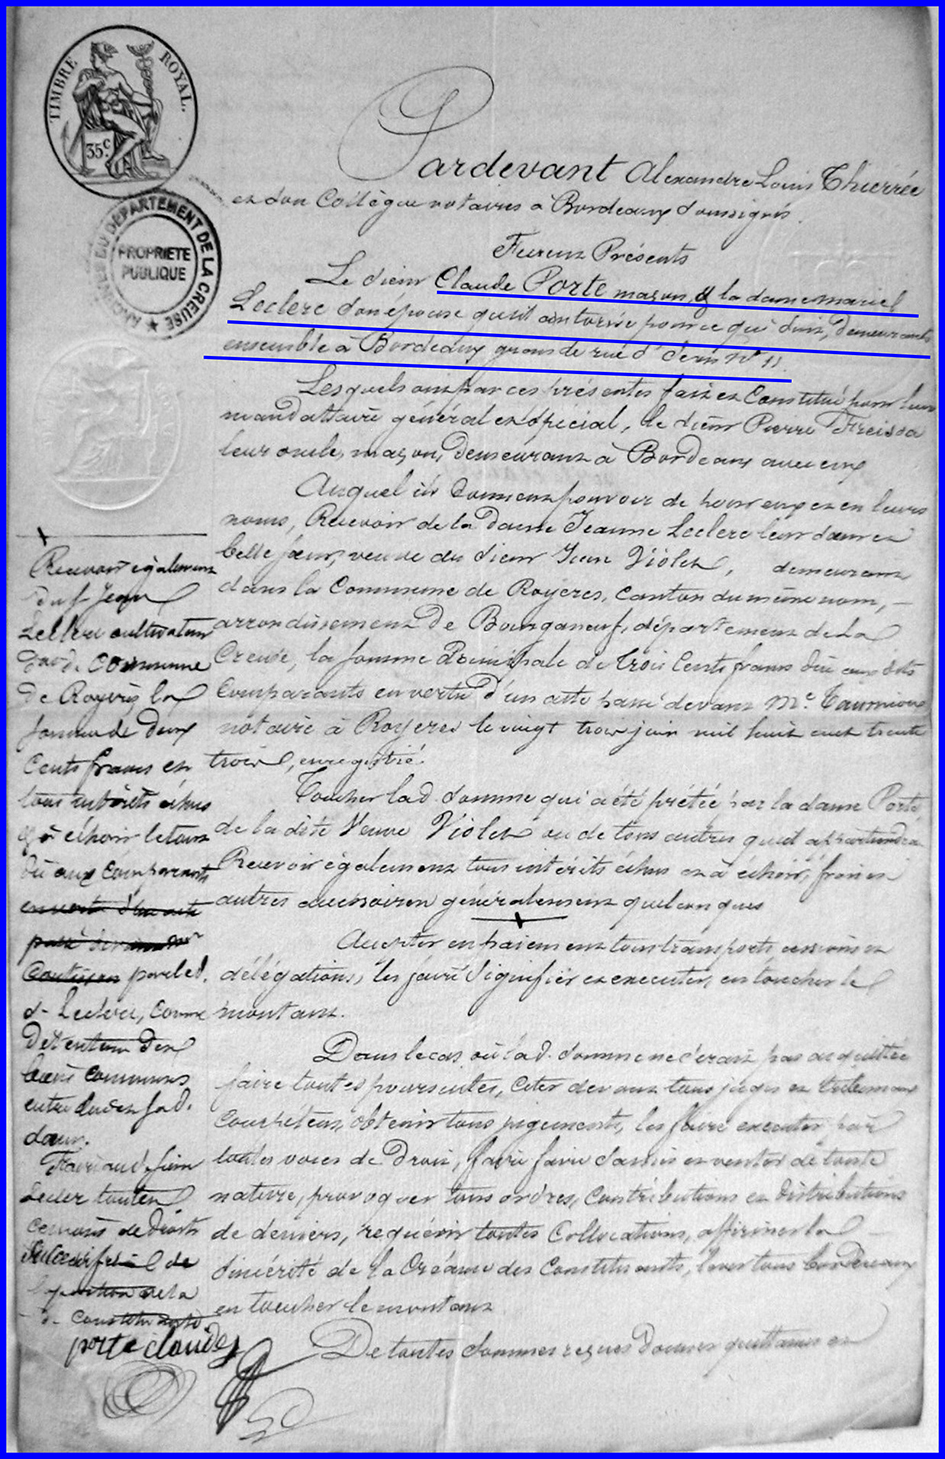 TIMBRE ROYAL.
35c.
DU DEPARTEMENT DE LA CREUSE
PROPRIETE
PUBLIQUE
Pardevant Alexandre Louis Thierrée
et son Collègue notaires a Bordeaux soussignés.
Furent Présents
Le sieur Claude Porte maçon, & la dame marie
Leclerc son épouse qu'il autorise pour ce qui suit, demeurants
ensemble a Bordeaux grande rue N° 11.
Lesquels ont par ces présentes fait et Constitué pour leur
mandattaire général et spécial, le sieur Pierre
leur oncle, maçon, demeurant a Bordeaux avec eux
Auquel ils Donnent pouvoir de pour eux et en leurs
noms, Recevoir de la Dame Jeanne Leclerc leur sœur et
belle sœur, veuve du sieur Jean Violet, demeurant
dans la Commune de Royeres, canton du même nom,
arrondissement de Bourganeuf, département de la
Creuse, la somme Principale de trois Cents francs due aux dits
Comparants en vertu d'un acte passé devant Me.
notaire à Royeres le vingt trois juin mil huit cent trente
trois, enregistré.
Toucher lad. somme qui a été prétée par la dame Porte
de la dite Veuve Violet ou de tous autres qu'il appartiendra
Recevoir également tous intérêts échus et à échoir, frais et
autres accessoires généralement quelconques
Accepter en paiement tous transports cessions et
délégations, les faire signifier et executer, en toucher le
montant.
Dans le cas où lad. somme ne serait pas acquittée
faire toutes poursuites, citer devant tous juges et tribunaux
compétens, obtenir tous jugements, les faire executer par
toutes voies de Droit, faire faire saisies et ventes de toute
nature, provoquer tous ordres, Contributions et distributions
de deniers, requérir toutes Collocations, affirmer la
sincérité de la Créance des Constituants, lever tous bordereaux
en toucher le montant
De toutes sommes reçues donner quittances et
Recevoir également
du s. Jean
Leclerc cultivateur
Commune
de Royères la
somme de deux
Cents francs et
tous intérêts échus
et à échoir le tout
dû aux comparants
en vertu d'un acte
passé devant Me
par led.
s. Leclerc, comme
Détenteur des
biens communs
entre lui et sad.
sœur.
Leclerc toutes
cessions de droits
de
porte claude